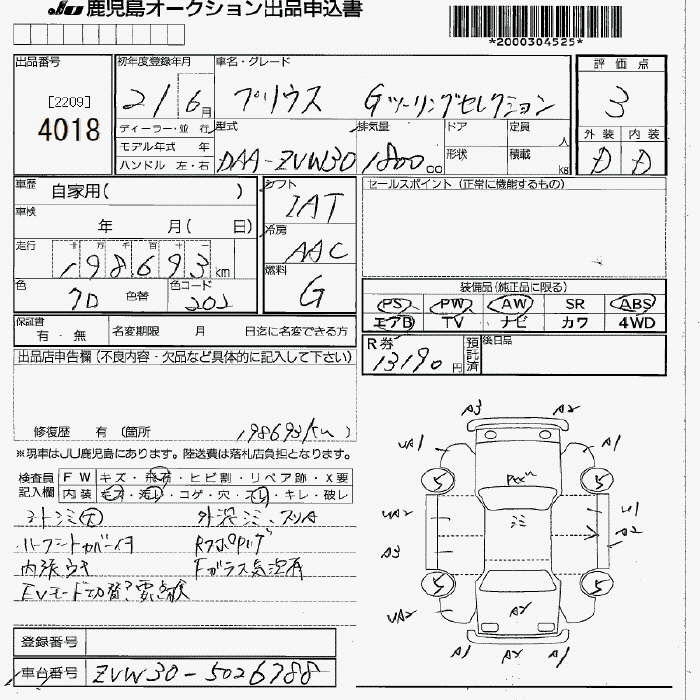 JU 鹿児島オークション出品申込書
*2000304525*
出品番号
[2209]
4018
初年度登録年月
21 6月
車名・グレード
プリウス Gツーリングセレクション
評価点
3
外装 内装
D D
ディーラー・並 行
モデル年式 年
ハンドル 左・右
型式
DAA-ZVW30
排気量
1800cc
ドア
形状
定員
人
積載
kg
車歴
自家用( )
車検
年 月( 日)
走行
十 万 千 百 十 一
198693km
色
色替
色コード
202
シフト
IAT
冷房
AAC
燃料
G
セールスポイント (正常に機能するもの)
装備品(純正品に限る)
PS PW AW SR ABS
エアB TV ナビ カワ 4WD
保証書
有・無
名変期限 月 日迄に名変できる方
R券
13190円
預託済
後日品
出品店申告欄(不良内容・欠品など具体的に記入して下さい)
修復歴 有 (箇所 198693km )
※現車はJU鹿児島にあります。陸送費は落札店負担となります。
検査員記入欄
FW キズ・飛石・ヒビ割・リペア跡・X要
内装 キズ・汚レ・コゲ・穴・スレ・キレ・破レ
内張ウキ
Fガラス気泡有
EVモード切替?要点検
A3 A2
UA1 A1
5 5
UA2 U1
A2
A3
5 5
UA2
A2
A1 A2 A1
登録番号
車台番号 ZVW30-5026788